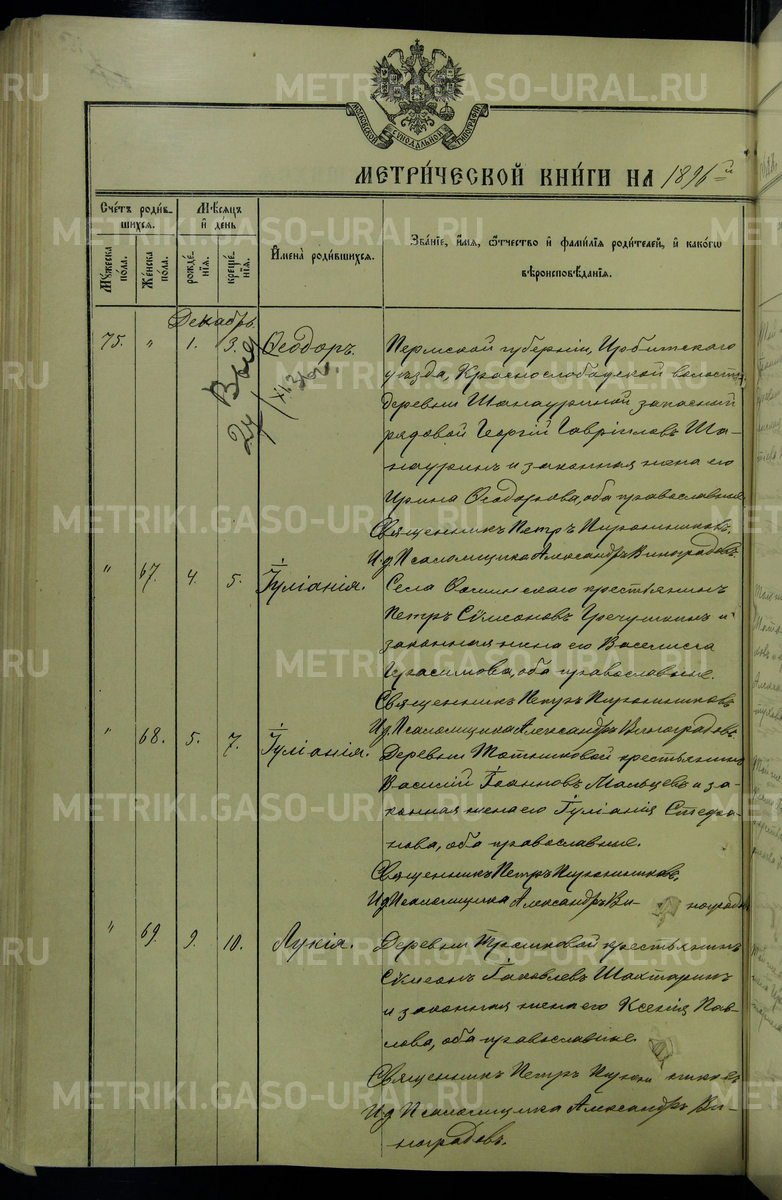 МОСКОВСКОЙ СѴНОДАЛЬНОЙ ТИПОГРАФІИ
МЕТРИ́ЧЕСКОЙ КНИ́ГИ НА 1896й
Сче́тъ роди́в-
шихсѧ.
Му́жеска по́ла.
Же́нска по́ла.
Мѣ́сѧцъ
и҆ де́нь
рожде́-нїѧ.
креще́-нїѧ.
И҆мена̀ роди́вшихсѧ.
Зва́нїе, и҆́мѧ, ѻ҆́тчество и҆ фами́лїѧ роди́телей, и҆ како́гѡ
вѣроисповѣ́данїѧ.
Декабрь.
75. " 1. 3. Ѳеодоръ.
Пермской губерніи, Ирбитскаго
уѣзда, Краснослободской волости,
деревни Шанауриной запасный
рядовой Георгій Гавріиловъ Ша-
науринъ и законная жена его
Ирина Ѳеодорова, оба православные.
Священникъ Петръ
И.д. Псаломщика Александръ Виноградовъ.
" 67. 4. 5. Іуліанія.
Села крестьянинъ
Петръ Сѵмеоновъ Гречушкинъ и
законная жена его Васелиса
Герасимова, оба православные.
Священникъ Петръ
И.д. Псаломщика Александръ Виноградовъ.
" 68. 5. 7. Іуліанія.
Деревни крестьянинъ
Василій Іоанновъ Мальцевъ и за-
конная жена его Іуліанія Стефа-
нова, оба православные.
Священникъ Петръ
И.д. Псаломщика Александръ Ви- ноградовъ
" 69. 9. 10. Лукія.
Деревни крестьянинъ
Сѵмеонъ Іаковлевъ Шахтаринъ
и законная жена его Ксенія Пав-
лова, оба православные.
Священникъ Петръ
И.д. Псаломщика Александръ Ви-
ноградовъ.
METRIKI.GASO-URAL.RU